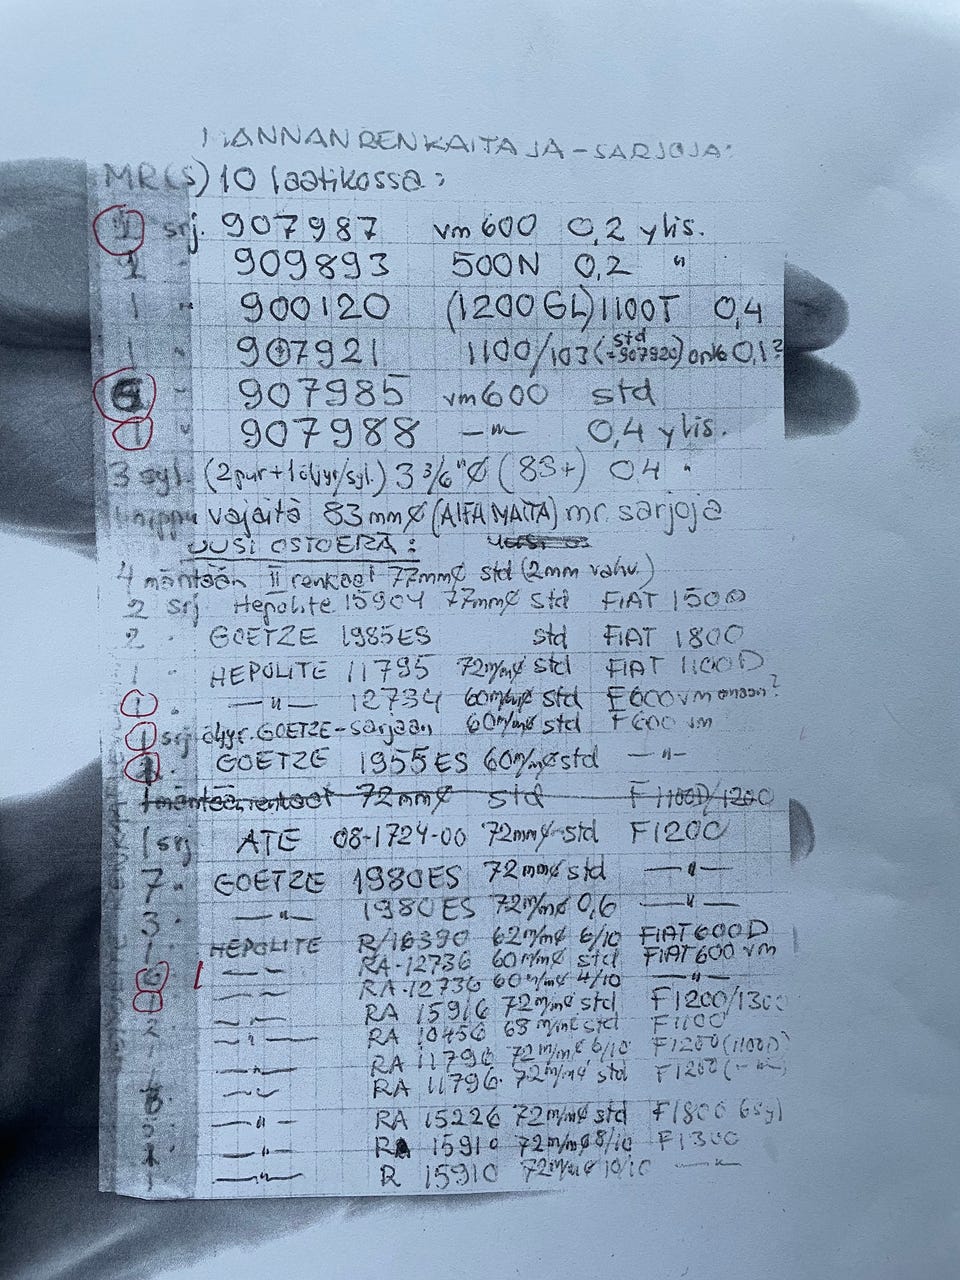 MÄNNÄNRENKAITA JA -SARJOJA:
MR(S) 10 laatikossa:
1 srj. 907987 vm600 0,2 ylis.
1 " 909893 500N 0,2 "
1 " 900120 (1200GL)1100T 0,4
1 " 907921 1100/103 (std =907920) onko 0,1?
" 907985 vm600 std
1 " 907988 —"— 0,4 ylis.
3 syl. (2pur+1öljyr/syl.) 3 3/6"Ø (83+) 0,4 "
1 nippu vajaita 83mmØ (ALFAMAITA) mr. sarjoja
UUSI OSTOERÄ:
4 mäntään II renkaat 77mmØ std (2mm vahv.)
2 srj Hepolite 15904 77mmØ std FIAT 1500
2 " GOETZE 1985ES std FIAT 1800
1 " HEPOLITE 11795 72m/mØ std FIAT 1100D
1 " —"— 12734 60m/mØ std F600 vm
1 srj öljyr. GOETZE-sarjaan 60m/mØ std F600 vm
GOETZE 1955ES 60m/mØ std —"—
1 mäntään renkaat 72mmØ std F1100D/1200
1 srj ATE 08-1724-00 72mmØ std F1200
7 " GOETZE 1980ES 72mmØ std —"—
3 " —"— 1980ES 72m/mØ 0,6 —"—
1 HEPOLITE R/16390 62m/mØ 6/10 FIAT600D
—"— RA-12736 60m/mØ std FIAT600 vm
1 —"— RA-12736 60m/mØ 4/10 —"—
2 —"— RA 15916 72m/mØ std F1200/1300
—"— RA 10456 68m/mØ std F1100
—"— RA 11796 72m/mØ 6/10 F1200(1100D)
—"— RA 11796 72m/mØ std F1200(—"—)
—"— RA 15226 72m/mØ std F1800 6syl
1 —"— RA 15910 72m/mØ 8/10 F1300
1 —"— R 15910 72m/mØ 10/10 —"—